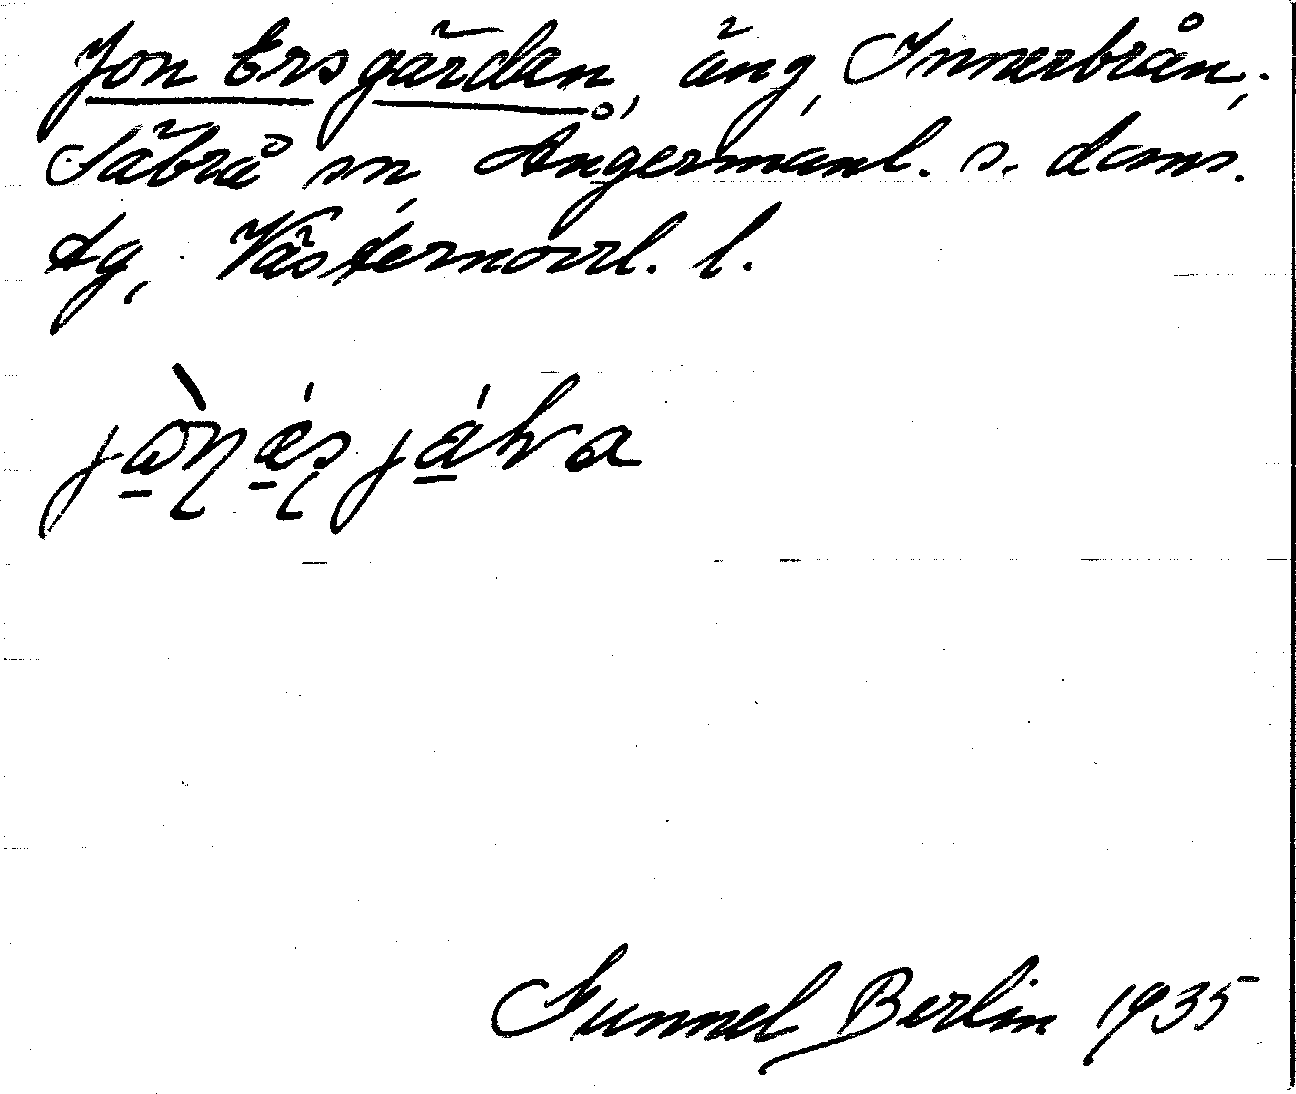 Jon Ersgärden, äng, Innerbrån,
Säbrå sn, Ångermanl. s. doms.
dg, Västernorrl. l.
Gunnel Berlin 1935